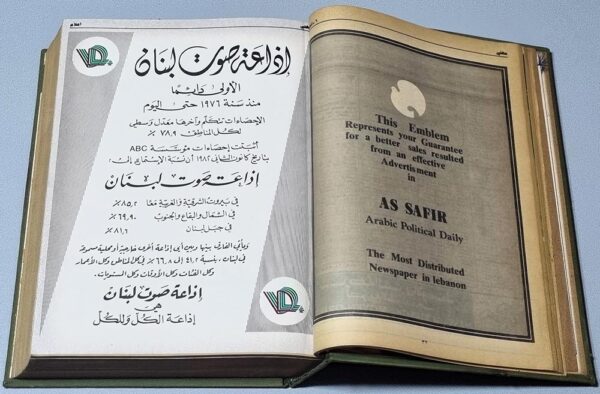 اعلام
VDL
إذاعة صوت لبنان
الأولى دائمًا
منذ سنة ١٩٧٦ حتى اليوم
الإحصاءات تتكلم وآخرها معدل وسطي
لكل المناطق ٧٨,٩ ٪
أثبتت إحصاءات مؤسسة ABC
بتاريخ كانون الثاني ١٩٨٢ أن نسبة الإستماع إلى:
إذاعة صوت لبنان
في بيروت الشرقية والغربية معًا ٨٥,٢ ٪
في الشمال والبقاع والجنوب ٦٩,٩٠ ٪
في جبل لبنان ٨١,٦ ٪
ويأتي الفارق بينها وبين أي إذاعة أخرى خارجية أو محلية مسموعة
في لبنان، بنسبة ٤١,٢ إلى ٦٦,٨ ٪ في كل المناطق وكل الأعمار
وكل الفئات وكل الأوقات وكل المستويات.
VDL
إذاعة صوت لبنان
هي
إذاعة الكل وللكل
This Emblem
Represents your Guarantee
for a better sales resulted
from an effective
Advertisment
in
AS SAFIR
Arabic Political Daily
The Most Distributed
Newspaper in lebanon